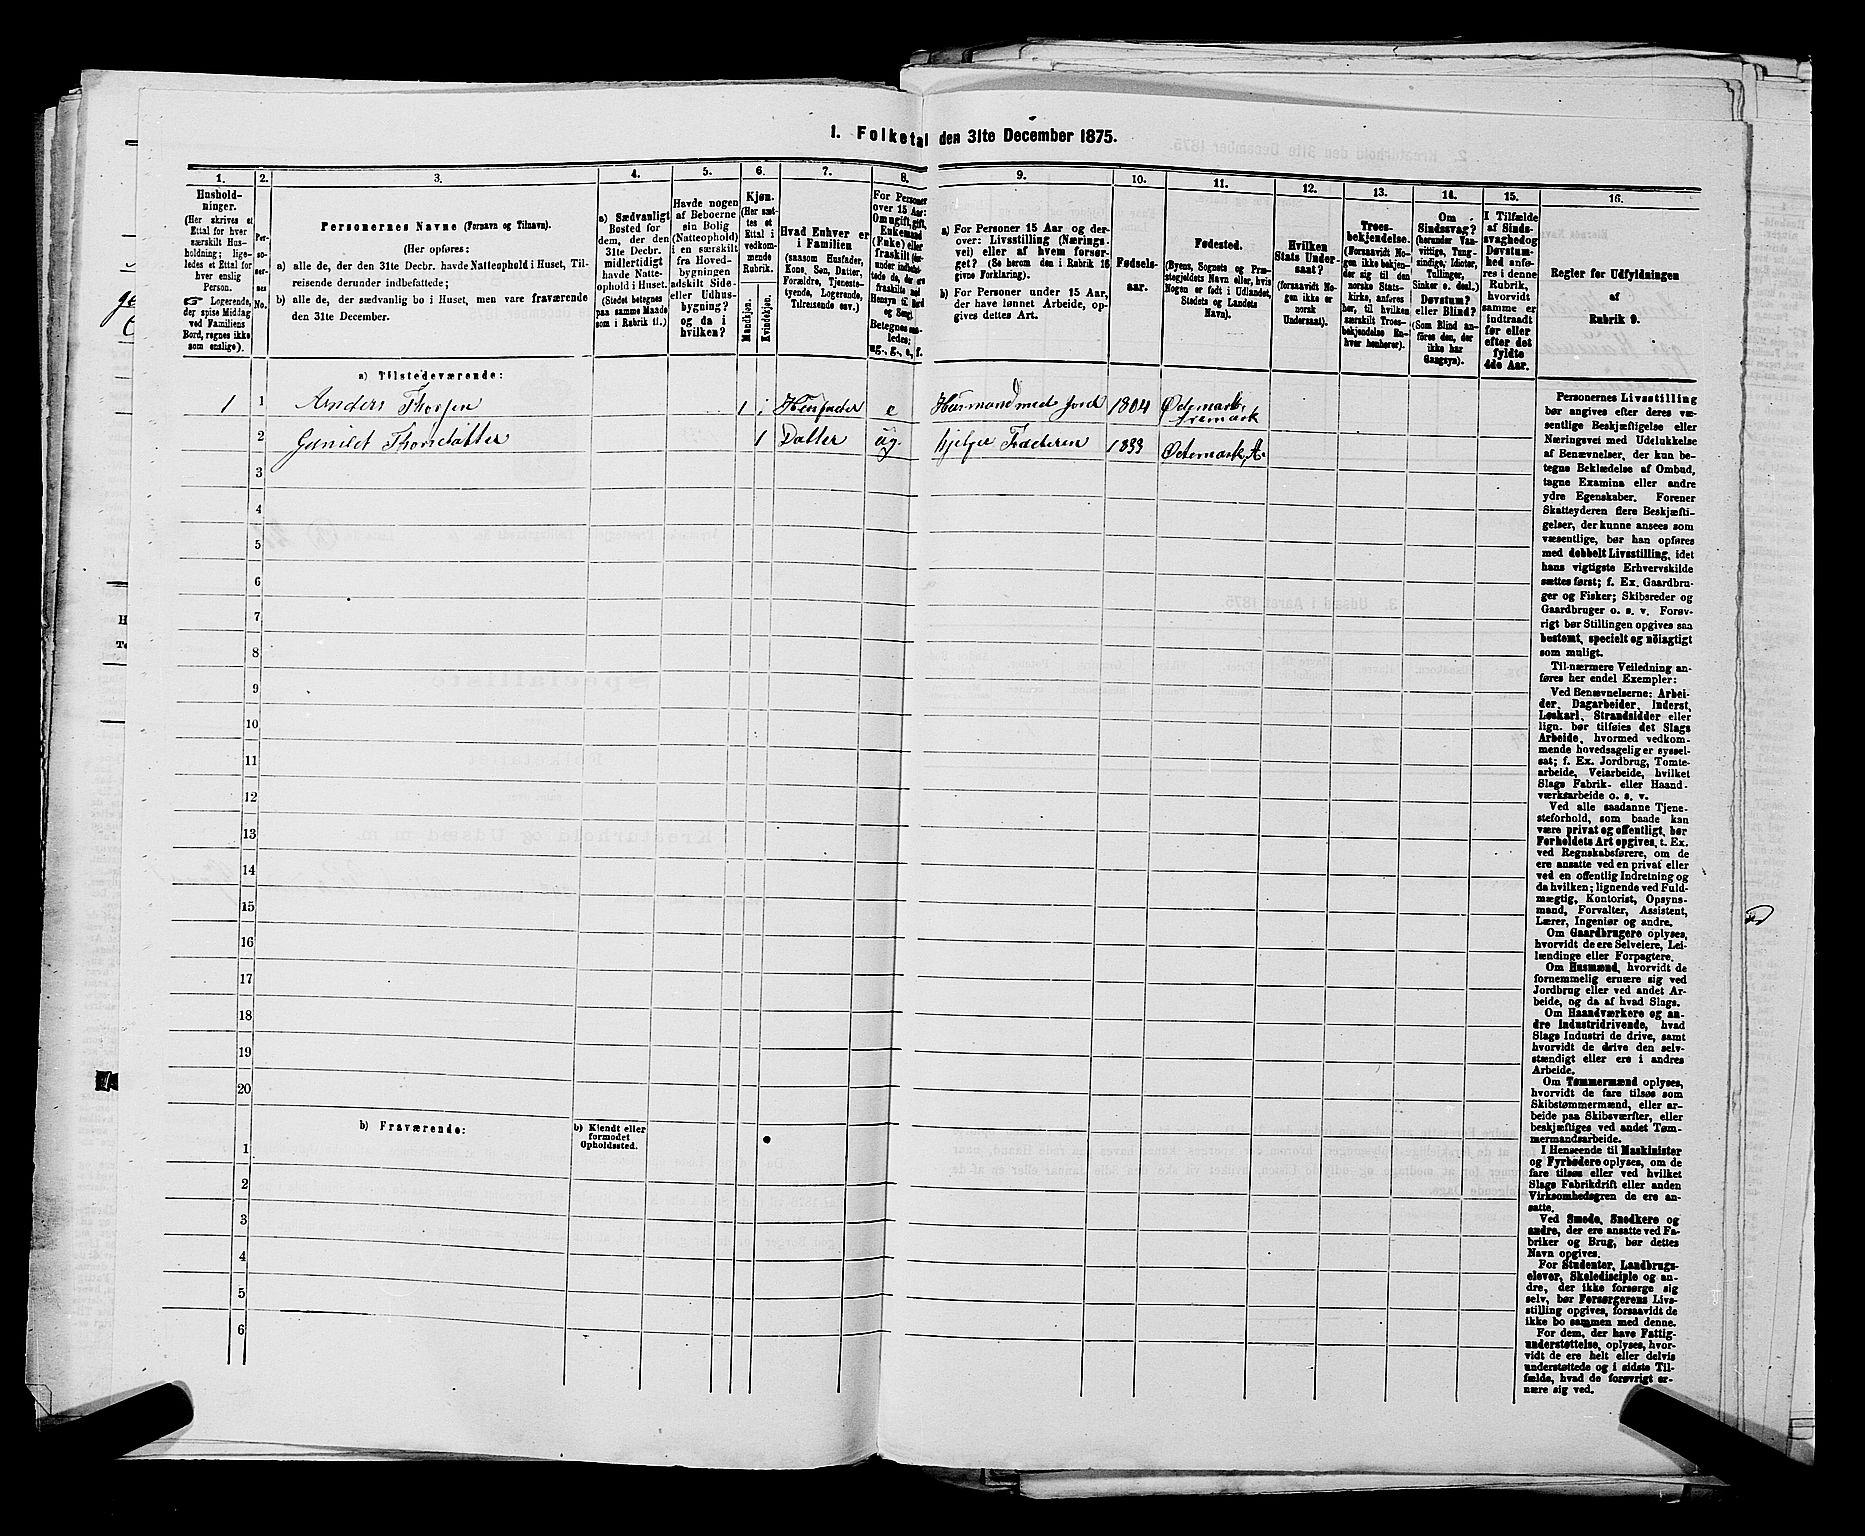 1. Folketal den 31te December 1875.
1.
2.
3.
4.
5.
6.
7.
8.
9.
10.
11.
12.
13.
14.
15.
16.
Hushold-
ninger.
(Her skrives et
Ettal for hver
særskilt Hus-
holdning; lige-
ledes et Ettal for
hver enslig
Person.
☞ Logerende,
der spise Middag
ved Familiens
Bord, regnes ikke
som enslige).
Per-
so-
ner-
nes
No.
Personernes Navne (Fornavn og Tilnavn).
(Her opføres:
a) alle de, der den 31te Decbr. havde Natteophold i Huset, Til-
reisende derunder indbefattede;
b) alle de, der sædvanlig bo i Huset, men vare fraværende
den 31te December.
a) Sædvanligt
Bosted for
dem, der den
31te Decbr.
midlertidigt
havde Natte-
ophold i Huset.
(Stedet betegnes
paa samme Maade
som i Rubrik 11.)
Havde nogen
af Beboerne
sin Bolig
(Natteophold)
i en særskilt
fra Hoved-
bygningen
adskilt Side-
eller Udhus-
bygning?
og da i
hvilken?
Kjøn.
(Her sæt-
tes et
Ettal i
vedkom-
mende
Rubrik.
Mandkjøn.
Kvindekjøn.
Hvad Enhver er
i Familien
(saasom Husfader,
Kone, Søn, Datter,
Forældre, Tjeneste-
tyende, Logerende,
Tilreisende osv.)
For Personer
over 15 Aar:
Om ugift, gift,
Enkemand
(Enke) eller
fraskilt
Betegnes saa-
ledes:
ug., g., e., f.
a) For Personer 15 Aar og der-
over: Livsstilling (Nærings-
vei) eller af hvem forsør-
get? (Se herom den i Rubrik 16
givne Forklaring).
b) For Personer under 15 Aar,
der have lønnet Arbeide, op-
gives dettes Art.
Fødsels-
aar.
Fødested.
(Byens, Sognets og Præ-
stegjeldets Navn eller, hvis
Nogen er født i Udlandet,
Stedets og Landets
Navn).
Hvilken
Stats Under-
saat?
(forsaavidt No-
gen ikke er
norsk
Undersaat).
Troes-
bekjendelse.
(Forsaavidt No-
gen ikke bekjen-
der sig til den
norske Stats-
kirke, anføres
her, til hvilken
særskilt Troes-
bekjendelse En-
hver henhører).
Om
Sindssvag?
(herunder Van-
vittige, Tung-
sindige, Idioter,
Tullinger,
Sinker o. desl.)
Døvstum?
eller Blind?
(Som Blind an-
føres den, der
ikke har
Gangsyn).
I Tilfælde
af Sinds-
svaghed og
Døvstum-
hed anfø-
res i denne
Rubrik,
hvorvidt
samme er
indtraadt
før eller
efter det
fyldte
4de Aar.
Regler for Udfyldningen
af
Rubrik 9.
a) Tilstedeværende:
1 1 Anders Thorsen 1 Husfader e Husmand med Jord 1804 Ødemark, Aremark
2 Gunild Thorsdatter 1 Datter ug. hjelper Faderen 1833 Ødemark, A.
3
4
5
6
7
8
9
10
11
12
13
14
15
16
17
18
19
20
b) Fraværende:
b) Kjendt eller
formodet
Opholdssted.
1
2
3
4
5
6
Personernes Livsstilling
bør angives efter deres væ-
sentlige Beskjæftigelse eller
Næringsvei med Udelukkelse
af Benævnelser, der kun be-
tegne Beklædelse af Ombud,
tagne Examina eller andre
ydre Egenskaber. Forener
Skatteyderen flere Beskjæfti-
gelser, der kunne ansees som
væsentlige, bør han opføres
med dobbelt Livsstilling, idet
hans vigtigste Erhvervskilde
sættes først; f. Ex. Gaardbru-
ger og Fisker; Skibsreder og
Gaardbruger o. s. v. Forøv-
rigt bør Stillingen opgives saa
bestemt, specielt og nöiagtigt
som muligt.
Til nærmere Veiledning an-
føres her endel Exempler:
Ved Benævnelserne: Arbei-
der, Dagarbeider, Inderst,
Løskarl, Strandsidder eller
lign. bør tilføies det Slags
Arbeide, hvormed vedkom-
mende hovedsagelig er syssel-
sat; f. Ex. Jordbrug, Tomte-
arbeide, Veiarbeide, hvilket
Slags Fabrik- eller Haand-
værksarbeide o. s. v.
Ved alle saadanne Tjene-
steforhold, som baade kan
være privat og offentligt, bør
Forholdets Art opgives, t. Ex.
ved Regnskabsførere, om de
ere ansatte ved en privat eller
ved en offentlig Indretning og
da hvilken; lignende ved Fuld-
mægtig, Kontorist, Opsyns-
mand, Forvalter, Assistent,
Lærer, Ingeniør og andre.
Om Gaardbrugere oplyses,
hvorvidt de ere Selveiere, Lei-
lændinge eller Forpagtere.
Om Husmænd, hvorvidt de
fornemmelig ernære sig ved
Jordbrug eller ved andet Ar-
beide, og da af hvad Slags.
Om Haandværkere og an-
dre Industridrivende, hvad
Slags Industri de drive, samt
hvorvidt de drive den selv-
stændigt eller ere i andres
Arbeide.
Om Tømmermænd oplyses,
hvorvidt de fare tilsøs som
Skibstømmermænd, eller ar-
beide paa Skibsværfter, eller
beskjæftiges ved andet Tøm-
mermandsarbeide.
I Henseende til Maskinister
og Fyrbødere oplyses, om de
fare tilsøs eller ved hvilket
Slags Fabrikdrift eller anden
Virksomhedsgren de ere an-
satte.
Ved Smede, Snedkere og
andre, der ere ansatte ved Fa-
briker og Brug, bør dettes
Navn opgives.
For Studenter, Landbrugs-
elever, Skoledisciple og an-
dre, der ikke forsørge sig
selv, bør Forsørgerens Livs-
stilling opgives, forsaavidt de
ikke bo sammen med denne.
For dem, der have Fattig-
understøttelse, oplyses, hvor-
vidt de ere helt eller delvis
understøttede og i sidste Til-
fælde, hvad de forøvrigt er-
nære sig ved.